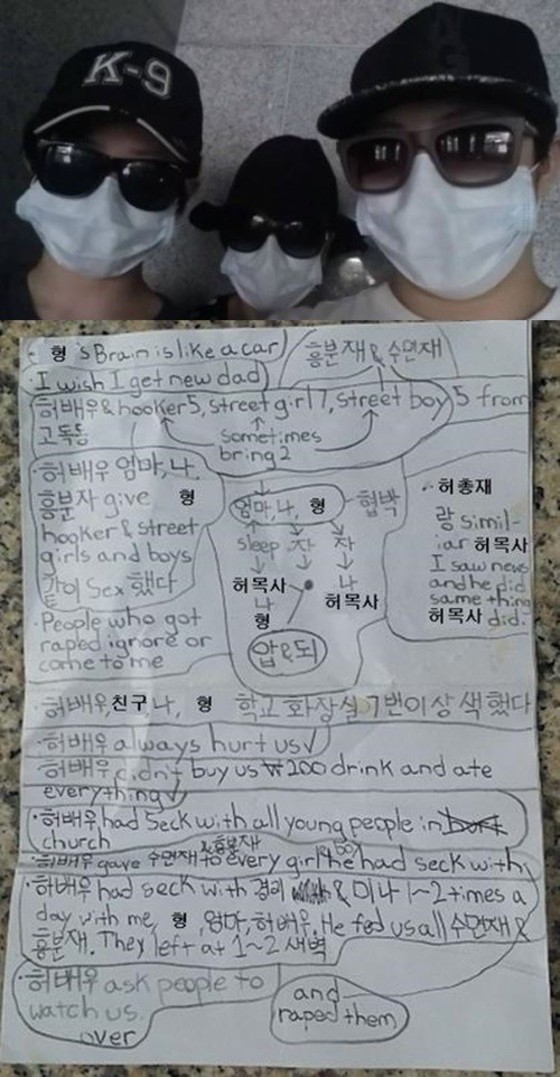 K-9
형 's Brain is like a car
흥분재 & 수면재
I wish I get new dad
허배우 & hooker 5, street girl 7, street boy 5 from
고독동
sometimes
bring 2
허배우 엄마, 나,
흥분자 give 형
hooker & street
girls and boys
같이 sex 했다
People who got
raped ignore or
come to me
엄마, 나, 형 협박
sleep 자 자
허목사 나
나 허목사
형
압 & 되
허총재
랑 simil-
iar 허목사
I saw news
and he did
same thing
허목사 did.
허배우, 친구, 나, 형 학교 화장실 7번이상 색했다
허배우 always hurt us
허배우 didn't buy us ₩200 drink and ate
everything
허배우 had seck with all young people in
church
& 흥분재
허배우 gave 수면재 to every girl he had seck with
허배우 had seck with 경리 & 미나 1~2 times a
day with me, 형, 엄마, 허배우. He fed us all 수면재 &
흥분재. They left at 1~2 새벽
허배우 ask people to
watch us.
over
and
raped them